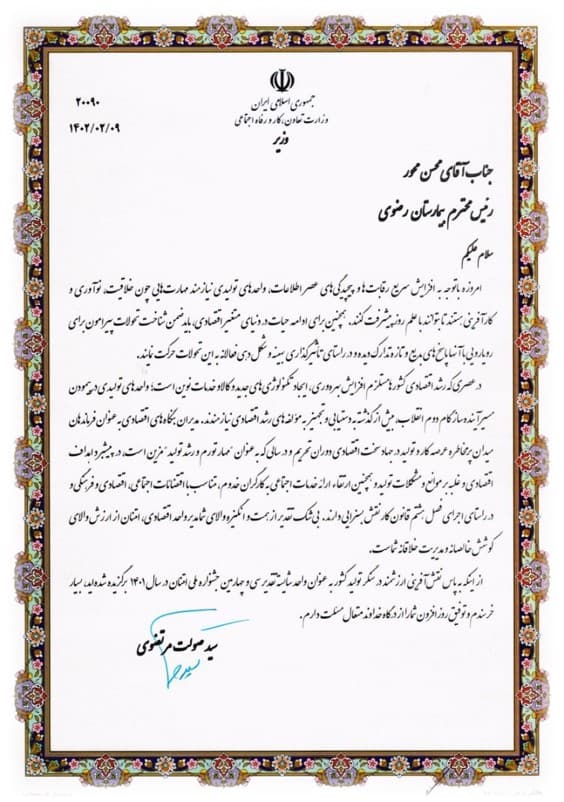 ۲۰۰۹۰
۱۴۰۲/۰۲/۰۹
جمهوری اسلامی ایران
وزارت تعاون، کار و رفاه اجتماعی
وزیر
جناب آقای محسن محور
رئیس محترم بیمارستان رضوی
سلام علیکم
امروزه با توجه به افزایش سریع رقابت‌ها و پیچیدگی‌های عصر اطلاعات، واحدهای تولیدی نیازمند مهارت‌هایی چون خلاقیت، نوآوری و
کارآفرینی هستند تا بتوانند با علم روز پیشرفت کنند. همچنین برای ادامه حیات در دنیای متغیر اقتصادی، باید ضمن شناخت تحولات پیرامون برای
رویارویی با آنها پاسخ‌های بدیع و تازه تدارک دیده و در راستای تأثیرگذاری بهینه و شکل‌دهی فعالانه به این تحولات حرکت نمایند.
در عصری که رشد اقتصادی کشورها مستلزم افزایش بهره‌وری، ایجاد تکنولوژی‌های جدید و کالا و خدمات نوین است؛ واحدهای تولیدی در پیمودن
مسیر آینده‌ساز گام دوم انقلاب، بیش از گذشته به دستیابی و تجهیز به مؤلفه‌های رشد اقتصادی نیازمندند. مدیران بنگاه‌های اقتصادی به عنوان فرماندهان
میدان پرمخاطره عرصه کار و تولید در جهاد سخت اقتصادی دوران تحریم و در سالی که به عنوان "مهار تورم و رشد تولید" مزین است، در پیشبرد اهداف
اقتصادی و غلبه بر موانع و مشکلات تولید و همچنین ارتقاء ارائه خدمات اجتماعی به کارگران خدوم، متناسب با اقتضائات اجتماعی، اقتصادی و فرهنگی و
در راستای اجرای فصل هشتم قانون کار نقش بسزایی دارند. بی‌شک تقدیر از همت و انگیزه والای شما مدیر واحد اقتصادی، امتنان از ارزش والای
کوشش خالصانه و مدیریت خلاقانه شماست.
از اینکه به پاس نقش‌آفرینی ارزشمند در سنگر تولید کشور به عنوان واحد شایسته تقدیر سی و چهارمین جشنواره ملی امتنان در سال ۱۴۰۱ برگزیده شده‌اید، بسیار
خرسندم و توفیق روزافزون شما را از درگاه خداوند متعال مسئلت دارم.
سید صولت مرتضوی